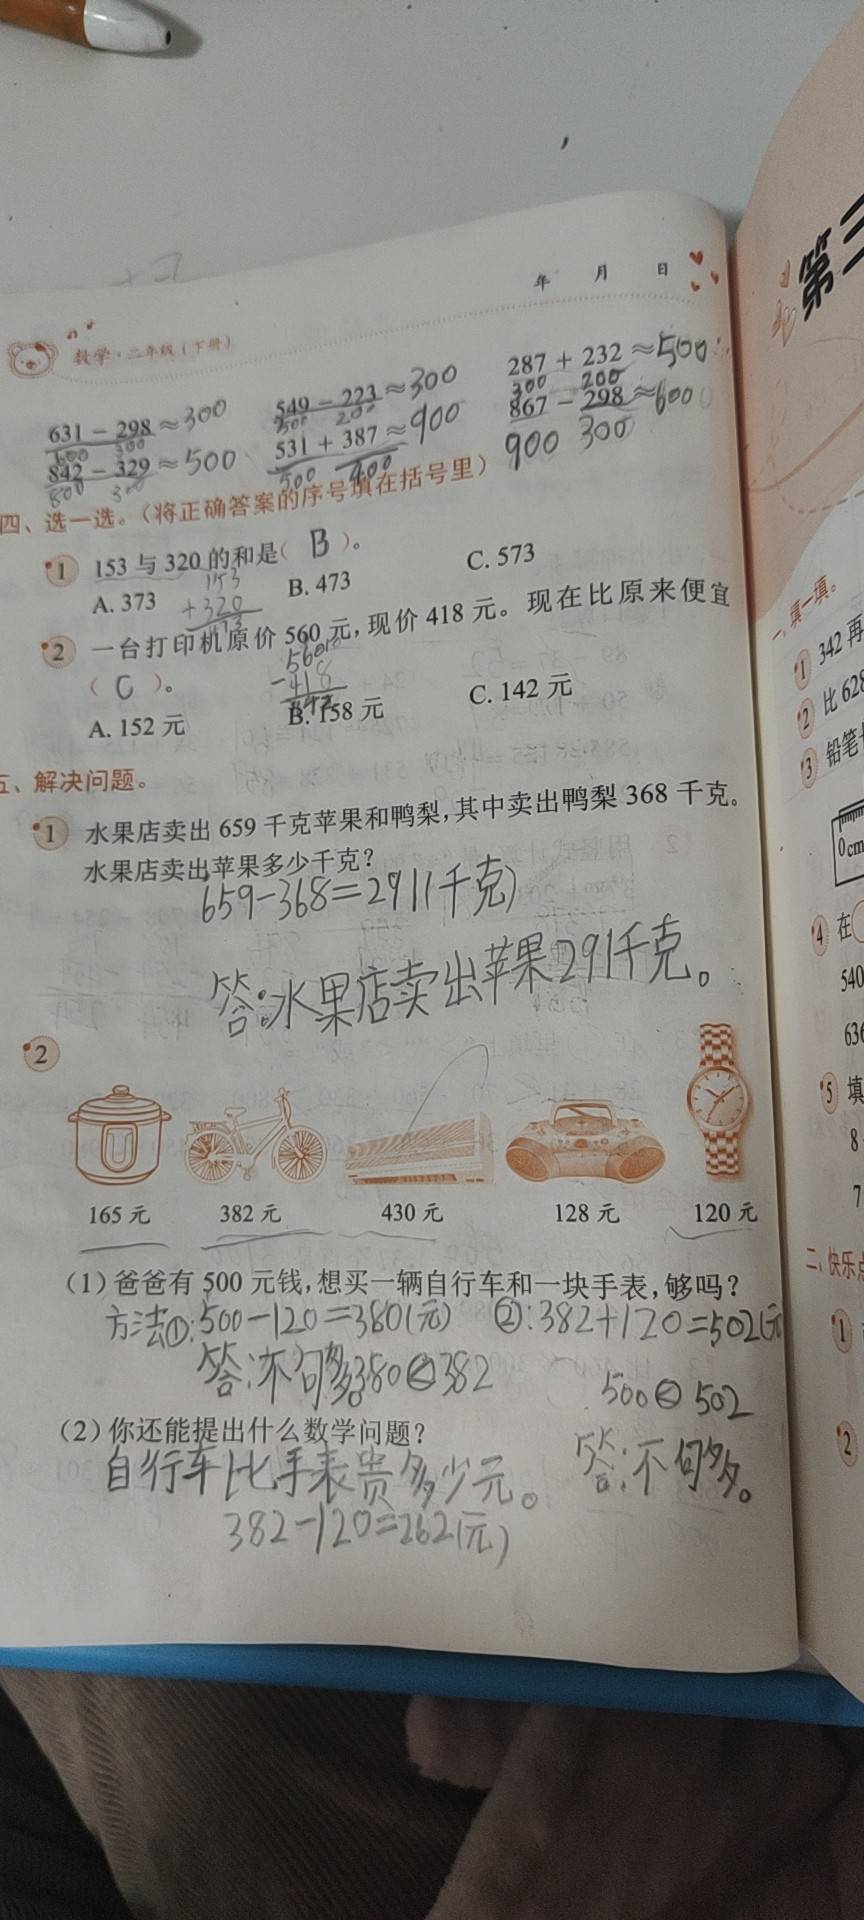 年 月 日
第三
数学·二年级(下册)
631-298≈300 549-223≈300 287+232≈500
600 300 500 200 300 200
842-329≈500 531+387≈900 867-298≈600
800 300 500 400 900 300
四、选一选。(将正确答案的序号填在括号里)
1 153 与 320 的和是( B )。
A. 373 B. 473 C. 573
153
+320
473
2 一台打印机原价 560 元,现价 418 元。现在比原来便宜
( C )。
560
-418
142
A. 152 元 B. 158 元 C. 142 元
五、解决问题。
1 水果店卖出 659 千克苹果和鸭梨,其中卖出鸭梨 368 千克。
水果店卖出苹果多少千克?
659-368=291(千克)
答:水果店卖出苹果291千克。
2
165 元 382 元 430 元 128 元 120 元
(1)爸爸有 500 元钱,想买一辆自行车和一块手表,够吗?
方法①:500-120=380(元) ②:382+120=502(元
答:不够。380<382 500<502
(2)你还能提出什么数学问题? 答:不够。
自行车比手表贵多少元。
382-120=262(元)
一、填一填。
1 342 再
2 比 628
3 铅笔
0 cm
4 在
540
636
5 填
8
7
二、快乐点
1
2